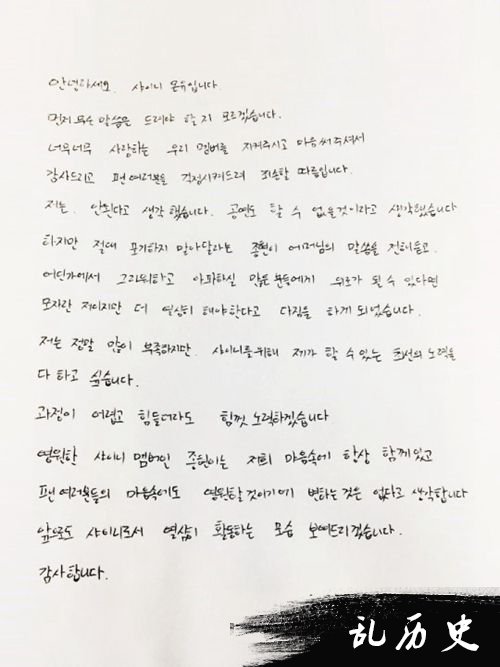 안녕하세요. 샤이니 온유입니다.
먼저 무슨 말씀을 드려야 할 지 모르겠습니다.
너무너무 사랑하는 우리 멤버를 지켜주시고 마음써주셔서
감사드리고 팬 여러분을 걱정시켜드려 죄송할 따름입니다.
저는. 안된다고 생각 했습니다. 공연도 할 수 없을것이라고 생각했습니다
하지만 절대 포기하지 말아달라는 종현이 어머님의 말씀을 전해듣고.
어딘가에서 그리워하고 아파하실 많은 분들에게 위로가 될 수 있다면
모자란 저이지만 더 열심히 해야한다고 다짐을 하게 되었습니다.
저는 정말 많이 부족하지만. 샤이니를위해 제가 할 수 있는 최선의 노력을
다 하고 싶습니다.
과정이 어렵고 힘들더라도 힘껏 노력하겠습니다
영원한 샤이니 멤버인 종현이는 저희 마음속에 항상 함께있고
팬 여러분들의 마음속에도 영원할것이기에 변하는것은 없다고 생각합니다
앞으로도 샤이니로서 열심히 활동하는 모습 보여드리겠습니다.
감사합니다.
乱历史